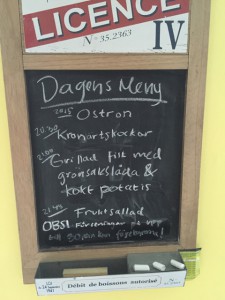 LICENCE
N° 35.2363
IV
Dagens Meny
20.15 Ostron
20.30
Kronärtskockor
21.00
Grillad filé med
grönsakslåda &
kokt potatis
21.45
Fruktsallad
OBS!
Débit de boissons autorisé